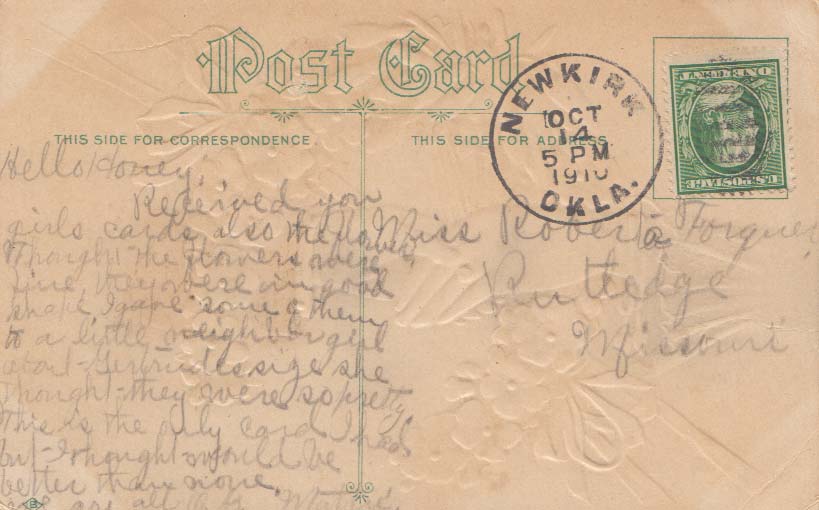 Post Card
THIS SIDE FOR CORRESPONDENCE.
THIS SIDE FOR ADDRESS
NEWKIRK
OCT
14
5 PM
1910
OKLA.
U.S. POSTAGE
ONE CENT
Hello Honey,
Received you
girls cards also the flowers
thought the flowers were
fine, they were in good
shape I gave some of them
to a little neighbor girl
about Gertrudes size she
thought they were so pretty
This is the only card I had
but I thought would be
better than none.
are all O.K.
Miss Roberta Forquer
Rutledge
Missouri